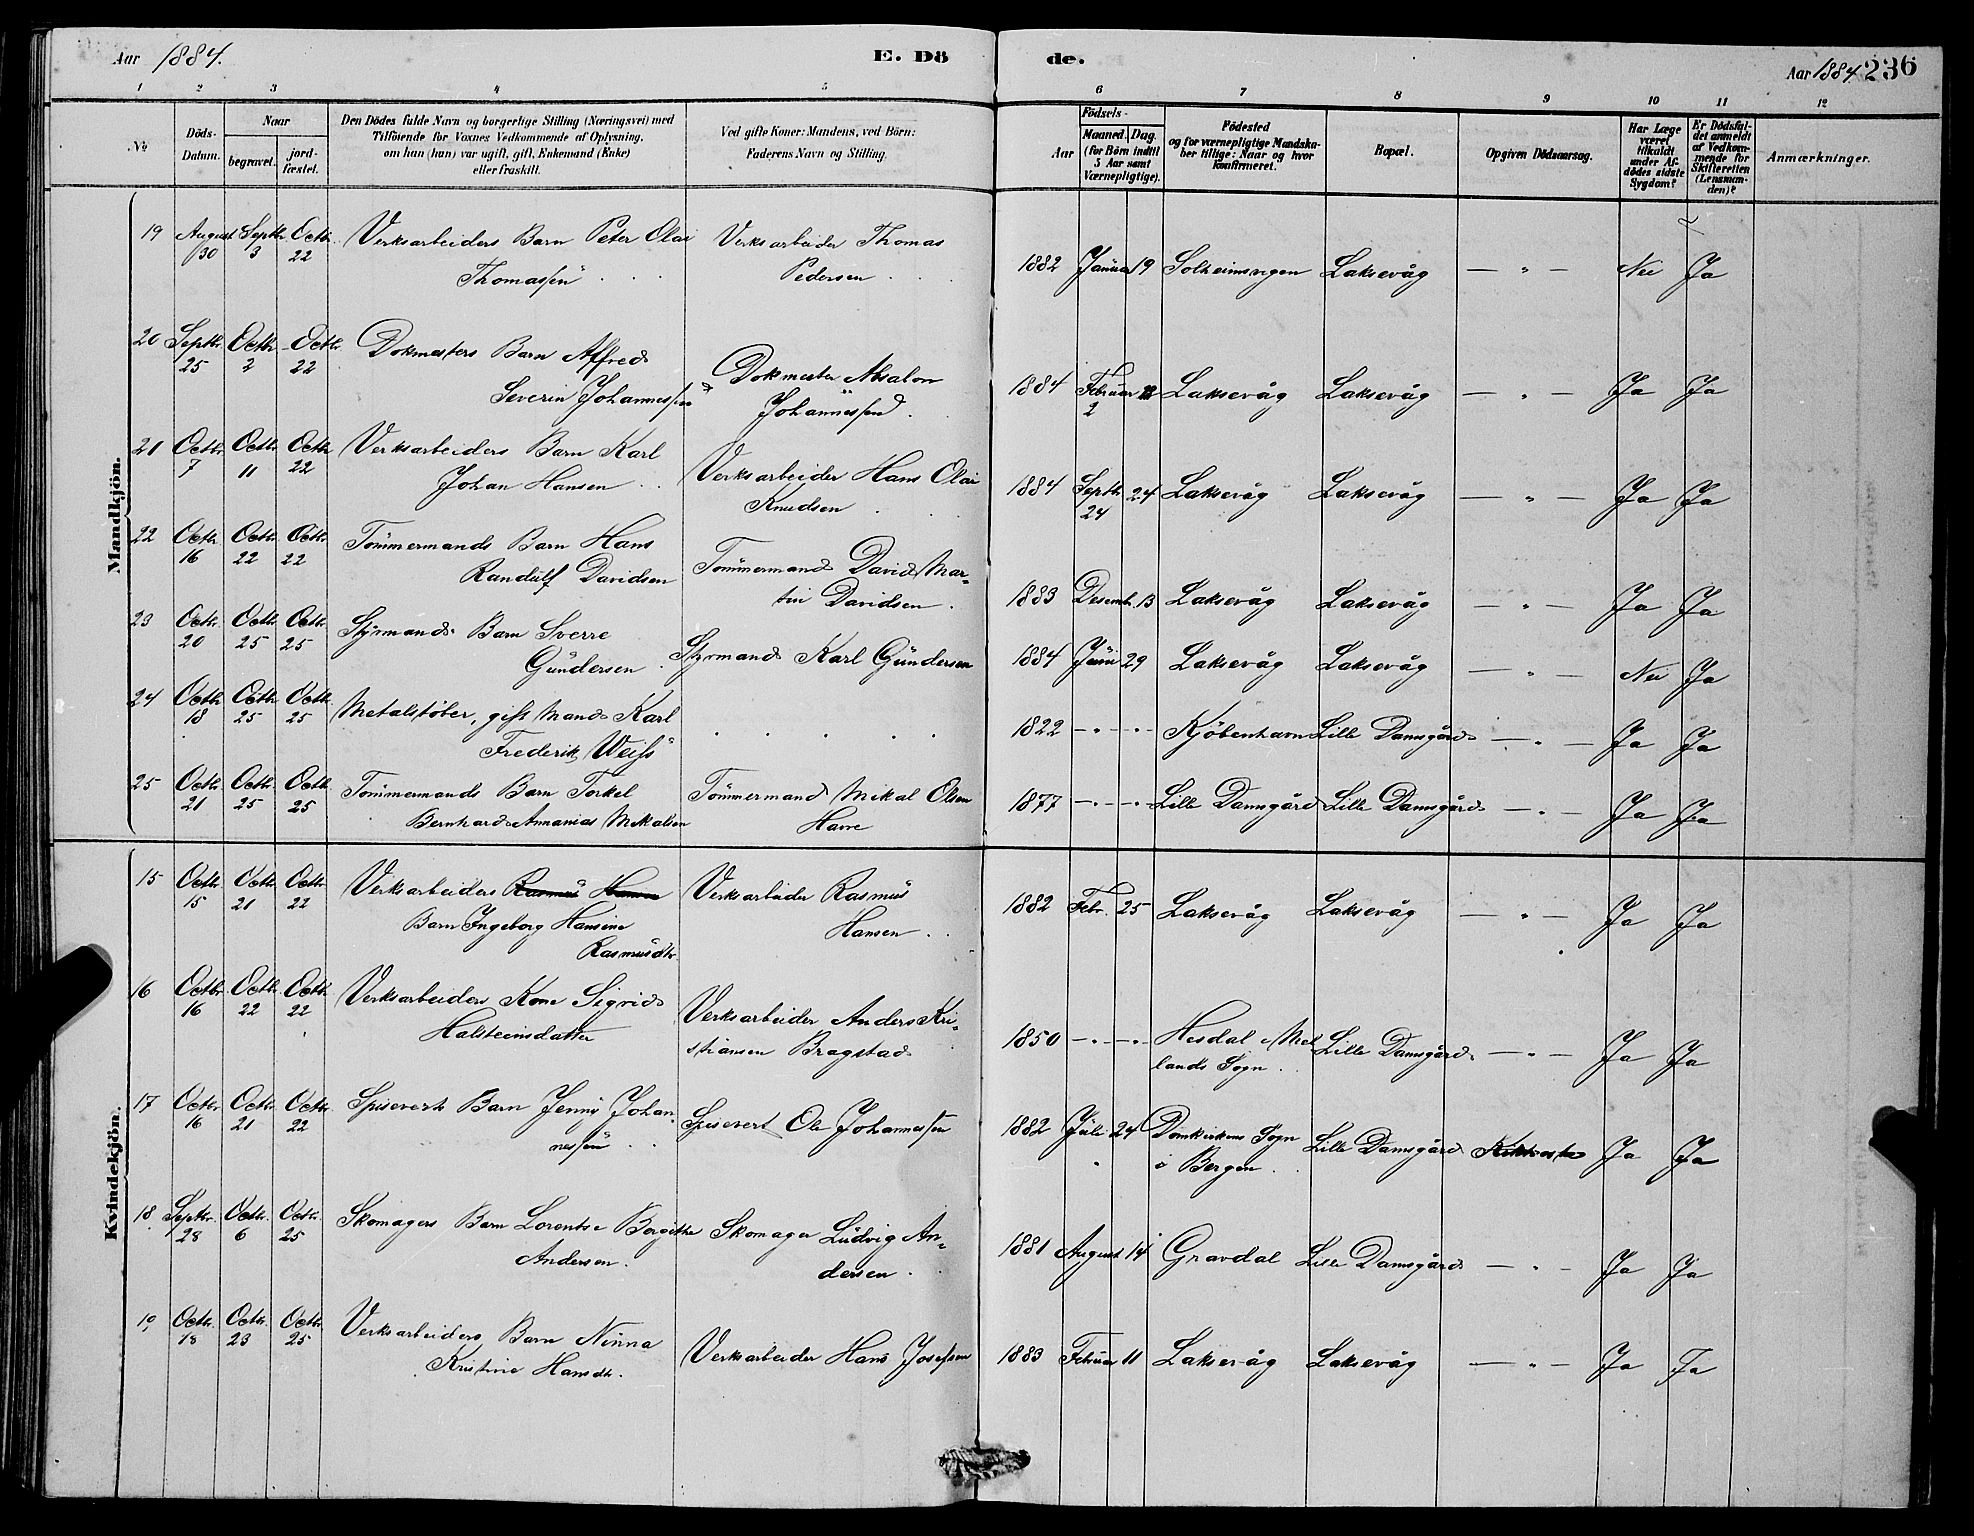 Aar 1884. E. Dö de. Aar 1884. 236
1 2 3 4 5 6 7 8 9 10 11 12
No
Döds-
Datum.
Naar
begravet. jord-
fæstet.
Den Dödes fulde Navn og borgerlige Stilling (Næringsvei) med
Tilföiende for Voxnes Vedkommende af Oplysning,
om han (hun) var ugift, gift, Enkemand (Enke)
eller fraskilt.
Ved gifte Koner: Mandens, ved Börn:
Faderens Navn og Stilling.
Födsels-
Aar Maaned. Dag.
(for Börn indtil
5 Aar samt
Værnepligtige).
Födested
og for værnepligtige Mandska-
ber tillige: Naar og hvor
konfirmeret.
Bopæl.
Opgiven Dödsaarsag.
Har Læge
været
tilkaldt
under Af-
dödes sidste
Sygdom?
Er Dödsfal-
det anmeldt
af Vedkom-
mende for
Skifteretten
(Lensman-
den)?
Anmærkninger.
Mandkjön.
19 August Septbr Octbr. Verksarbeiders Barn Peter Olai Verksarbeider Thomas
30 3 22 Thomassen Pedersen
1882 Januar 19 Solheimsvigen Laksevåg — " — Nei Ja
20 Septbr. Octbr Octbr. Dokmesters Barn Alfred
25 2 22 Severin Johannessen Dokmester Absalon
Johannessen
1884 Februar Laksevåg Laksevåg — " — Ja Ja
2
21 Octbr. Octbr Octbr Verksarbeiders Barn Karl
7 11 22 Johan Hansen Verksarbeider Hans Olai
Knudsen
1884 Septbr. 24 Laksevåg Laksevåg — " — Ja Ja
24
22 Octbr. Octbr. Octbr. Tömmermands Barn Hans
16 22 22 Randulf Davidsen Tömmermand David Mar-
tin Davidsen.
1883 Desembr. 13 Laksevåg Laksevåg — " — Ja Ja
23 Octbr. Octbr. Octbr. Styrmands Barn Sverre
20 25 25 Gundersen Styrmand Karl Gundersen
1884 29 Laksevåg Laksevåg — " — Nei Ja
24 Octbr. Octbr. Octbr. Metalstøber, gift Mand Karl
18 25 25 Frederik Weiss
1822 — " — " — Kjöbenhavn Lille Damsgård — " — Ja Ja
25 Octbr. Octbr. Octbr. Tömmermands Barn Torkel Tömmermand Mikal Olsen
21 25 25 Bernhard Annanias Mikalsen
1877 — " — " — Lille Damsgård Lille Damsgård — " — Ja Ja
Kvindekjön.
15 Octbr. Octbr. Octbr. Verksarbeiders Rasmus Hansen Verksarbeider Rasmus
15 21 22 Barn Ingeborg Hansine Hansen
Rasmusdtr.
1882 Febr. 25 Laksevåg Laksevåg — " — Ja Ja
16 Octbr. Octbr. Octbr. Verksarbeiders Kone Sigrid
16 22 22 Halsteinsdatter Verksarbeider Anders Kri-
stiansen Bragstad
1850 — " — " — Hesdal i Mel Lille Damsgård — " — Ja Ja
lands Sogn
17 Octbr. Octbr. Octbr. Spiseverts Barn Jenny Johan
16 21 22 nessen Spisevert Ole Johannessen
1882 Juli 24 Domkirkens Sogn Lille Damsgård Kikhoste Ja Ja
" i Bergen
18. Septbr. Octbr. Octbr. Skomagers Barn Lorentse Bergithe Skomager Ludvig An-
28 6 25 Andersen. dersen.
1881 August 14 Gravdal Lille Damsgård — " — Ja Ja
19 Octbr. Octbr. Octbr. Verksarbeiders Barn Ninna
18 23 25 Kristine Hansdtr. Verksarbeider Hans Josefsen
1883 Februar 11 Laksevåg Laksevåg — " — Ja Ja